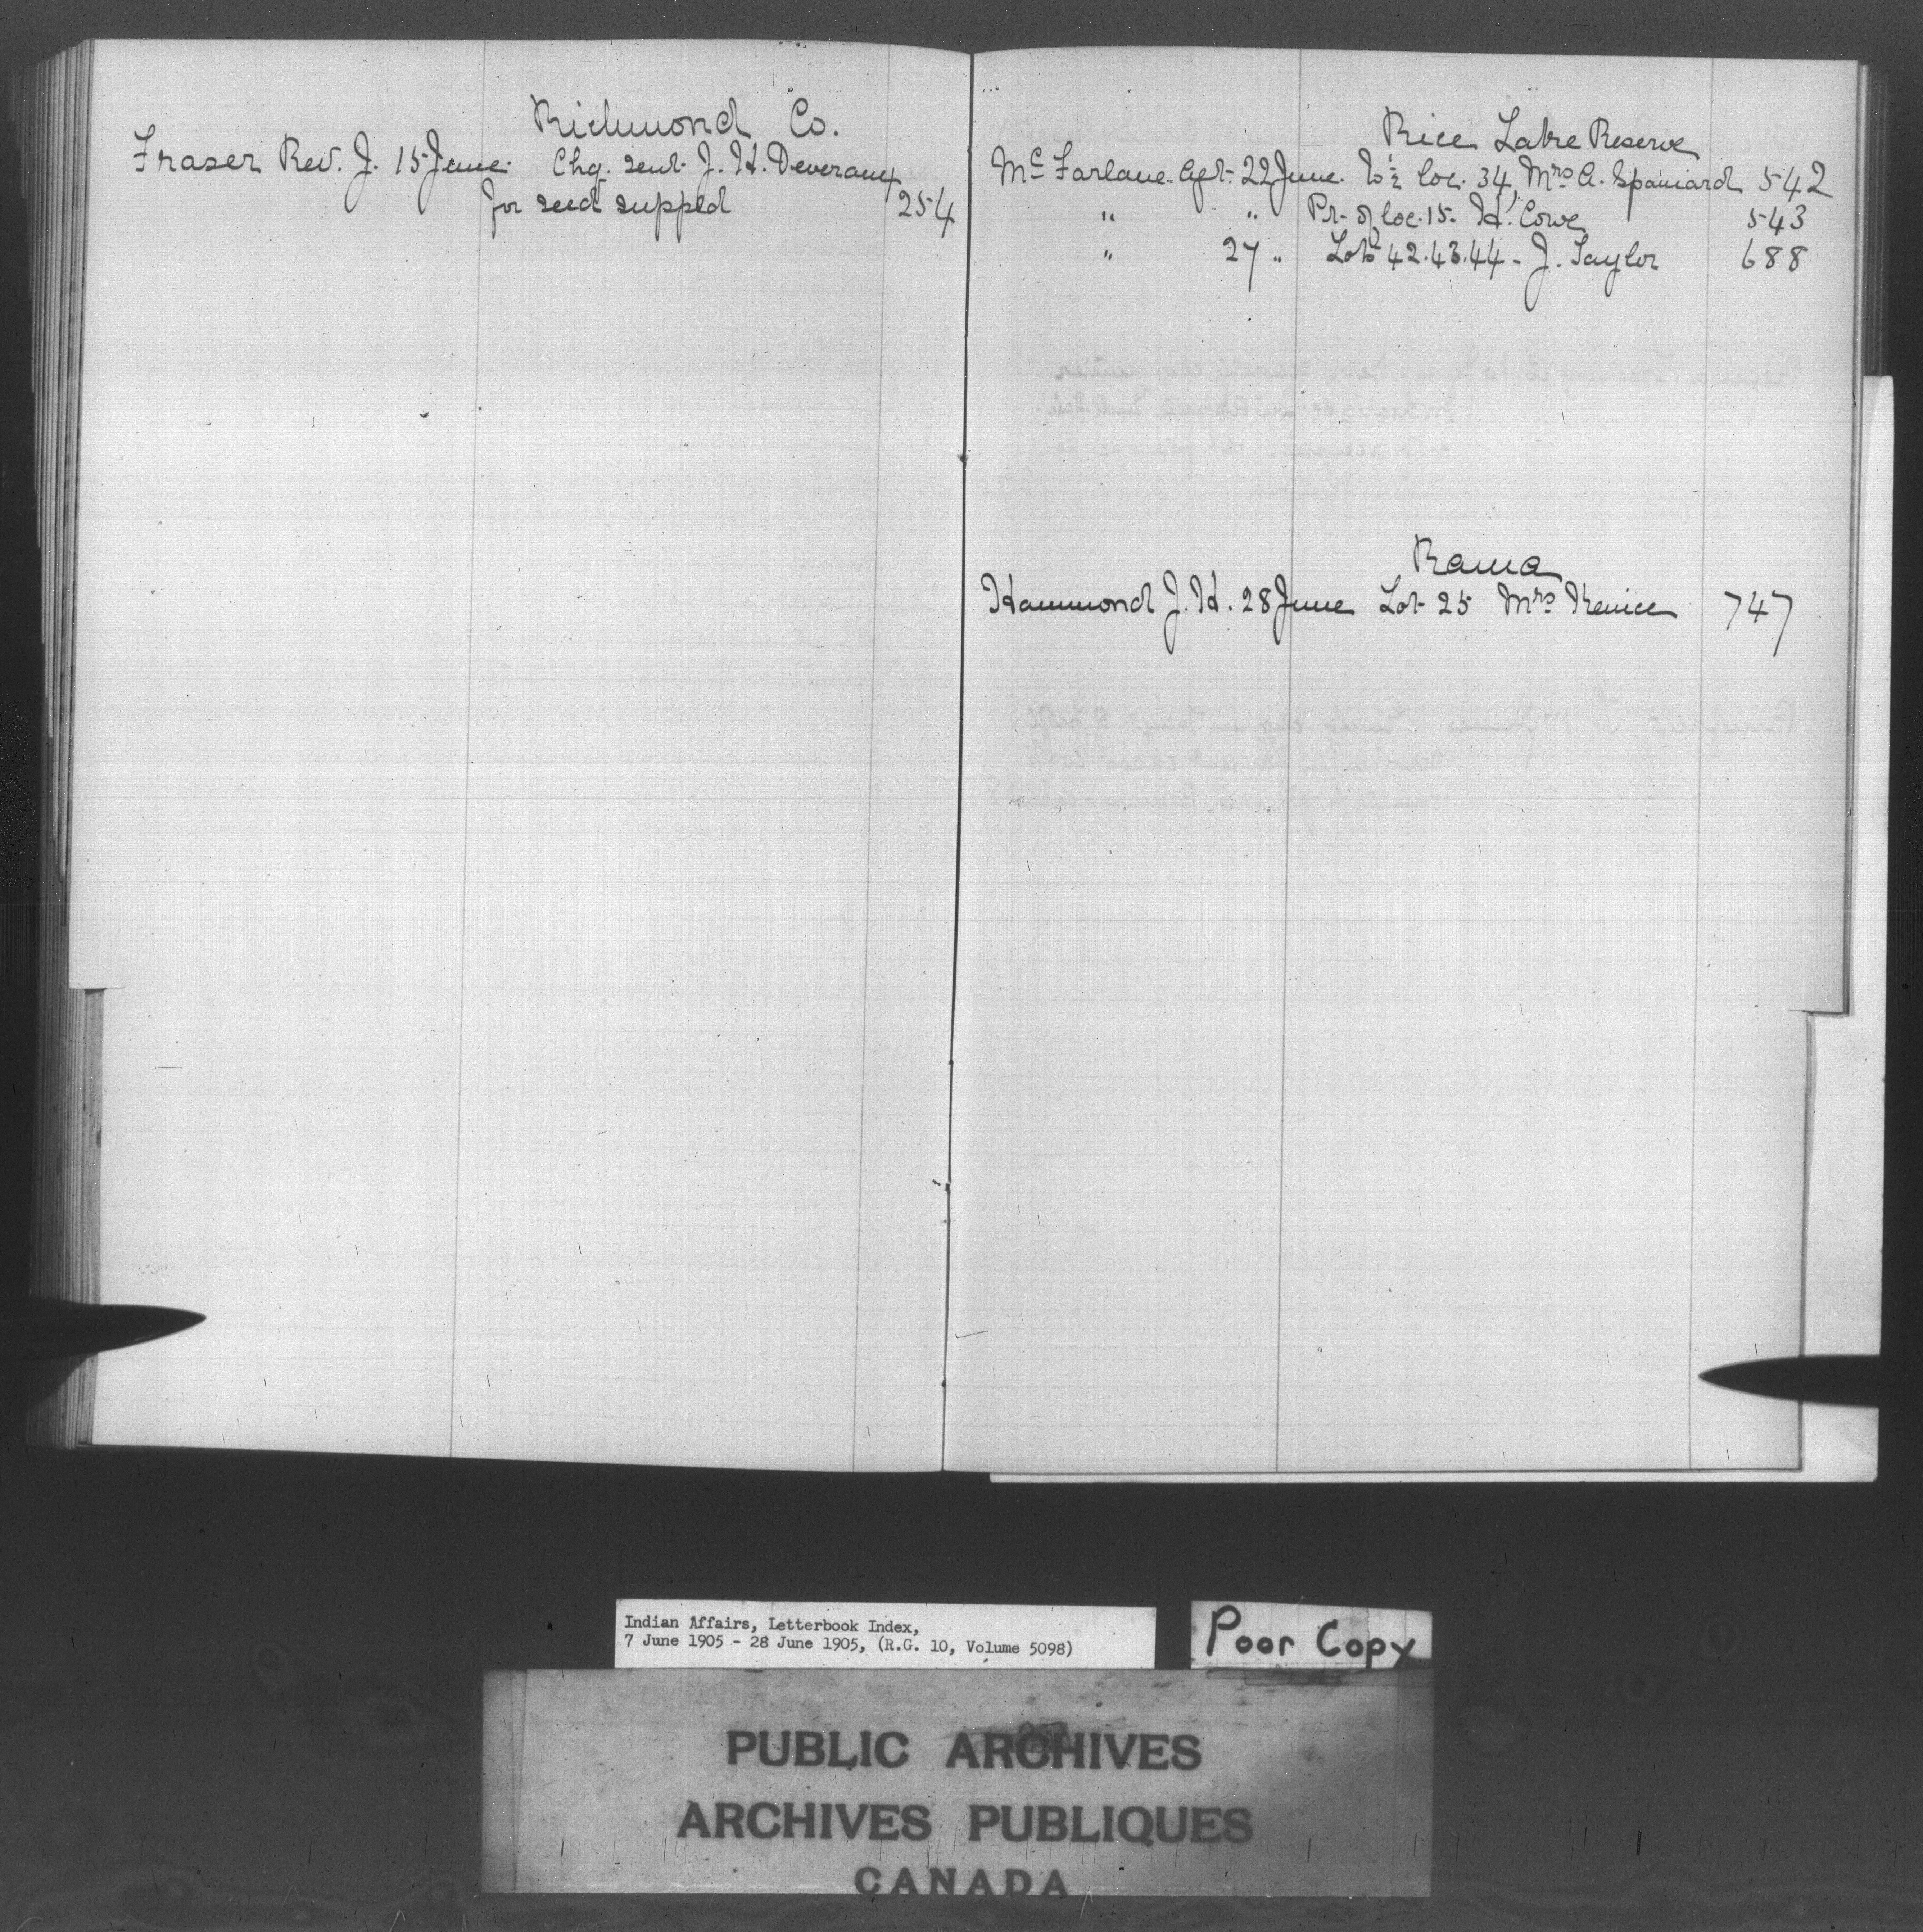 Richmond Co.
Fraser Rev. J. 15 June. Chq. sent J. H. Deveraux
for seed suppld 254
Rice Lake Reserve
McFarlane Agt. 22 June. W ½ loc. 34, Mrs A. Spaniard 542
" " Pt. of loc. 15. H. Cowe 543
" 27 " Lots 42.43.44 - J. Taylor 688
Rama
Hammond J. H. 28 June Lot 25 Mrs Kenice 747
Indian Affairs, Letterbook Index,
7 June 1905 - 28 June 1905, (R.G. 10, Volume 5098)
Poor Copy
PUBLIC ARCHIVES
ARCHIVES PUBLIQUES
CANADA